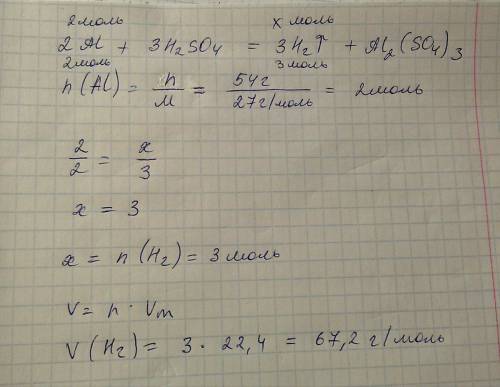 2моль x моль
2 Al + 3H₂SO₄ = 3H₂↑ + Al₂(SO₄)₃
2моль 3 моль
n(Al) = n/M = 54г/27г/моль = 2моль
2/2 = x/3
x = 3
x = n(H₂) = 3 моль
V = n · Vm
V(H₂) = 3 · 22,4 = 67,2 г/моль